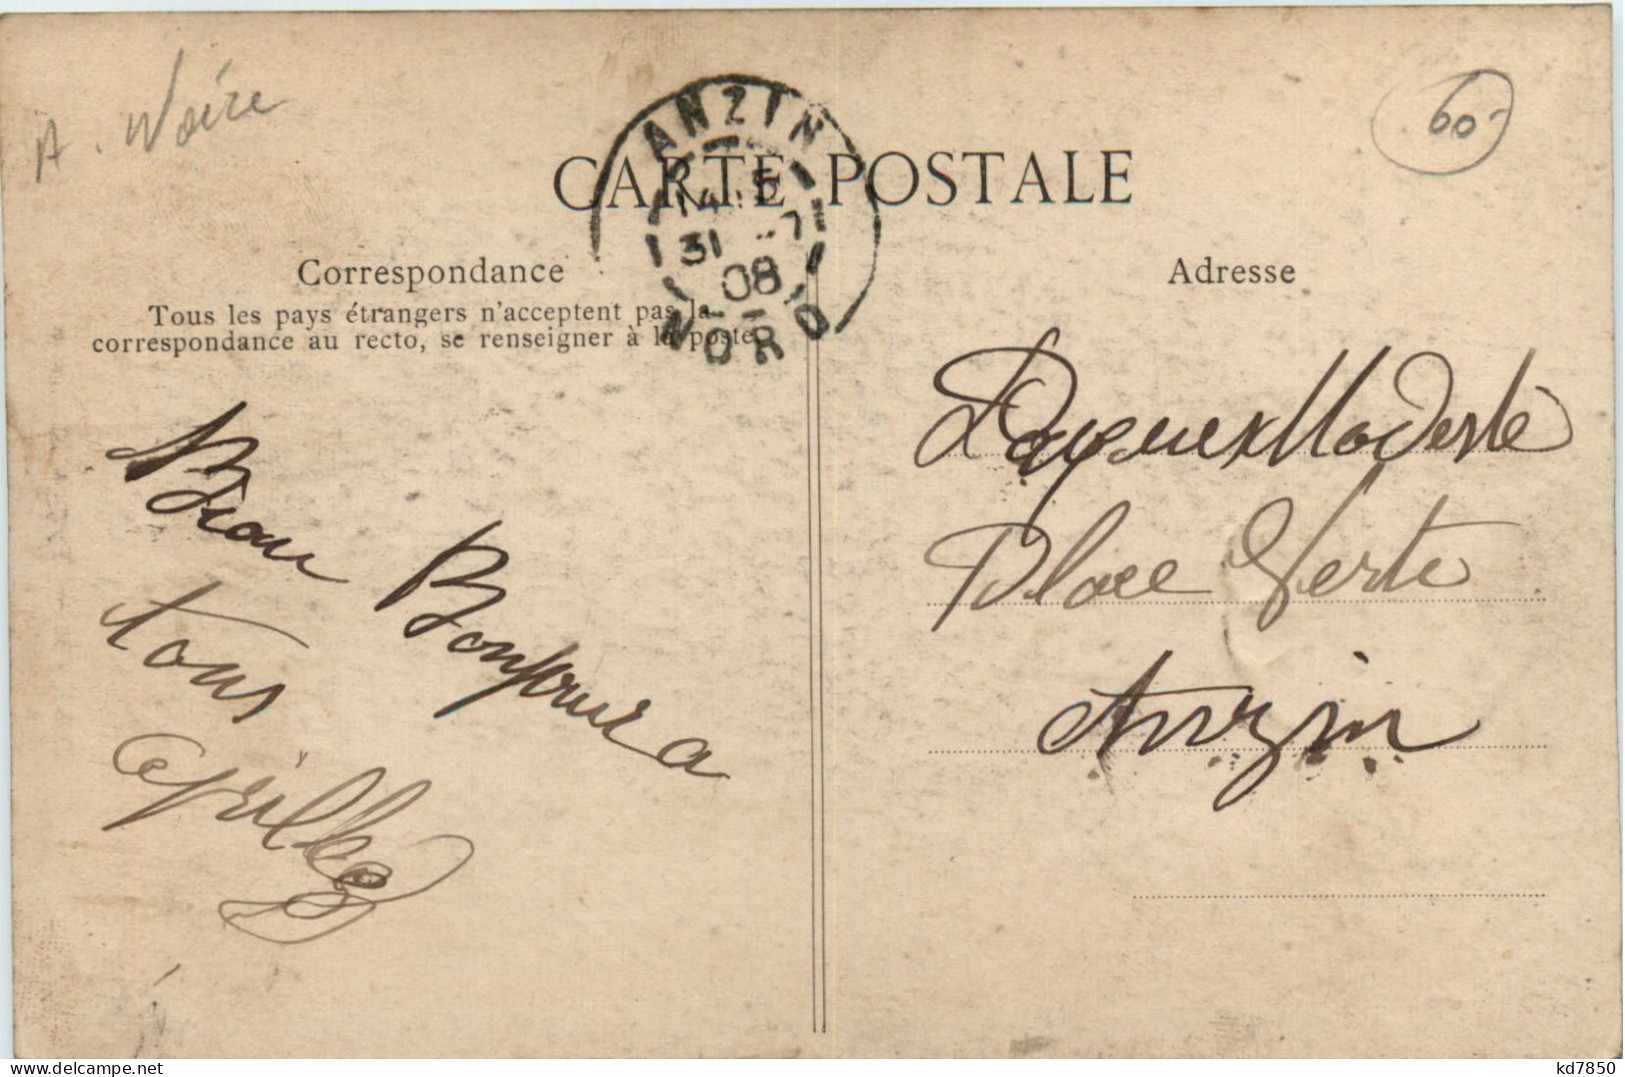 A. Noire
60
ANZIN
14 · 5
31 - 7
08
NORD
CARTE POSTALE
Correspondance
Tous les pays étrangers n'acceptent pas la
correspondance au recto, se renseigner à la poste
Adresse
Modeste
Place Verte
Anzin
Bonjour a
tous
delcampe.net
kd7850